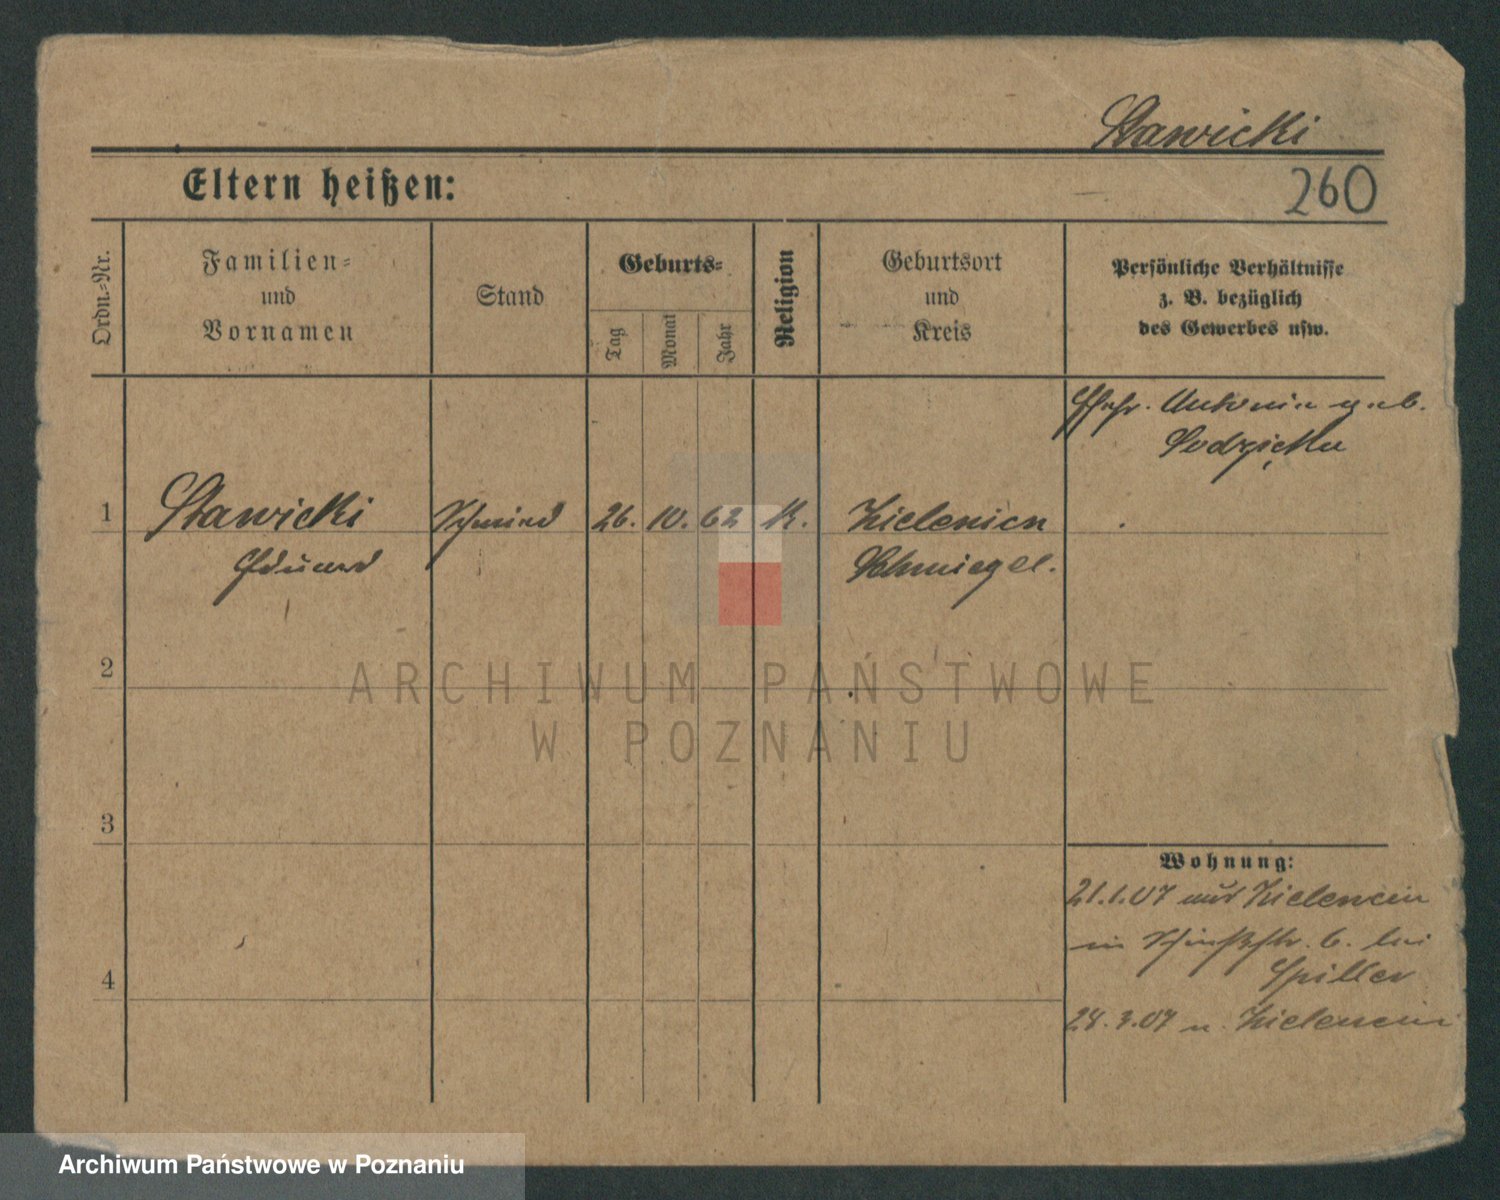 Stawicki
Eltern heißen:
260
Ordn.-Nr.
Familien-
und
Vornamen
Stand
Geburts-
Tag
Monat
Jahr
Religion
Geburtsort
und
Kreis
Persönliche Verhältnisse
z. B. bezüglich
des Gewerbes usw.
Ehefr. Antonia geb.
1
Stawicki
Schmied
26.
10.
62
K.
Zielencin
Eduard
Schmiegel.
2
3
4
Wohnung:
21.1.07 aus Zielencin
in 6. bei
Spiller
28.3.07 n. Zielencin
ARCHIWUM PAŃSTWOWE
W POZNANIU
Archiwum Państwowe w Poznaniu